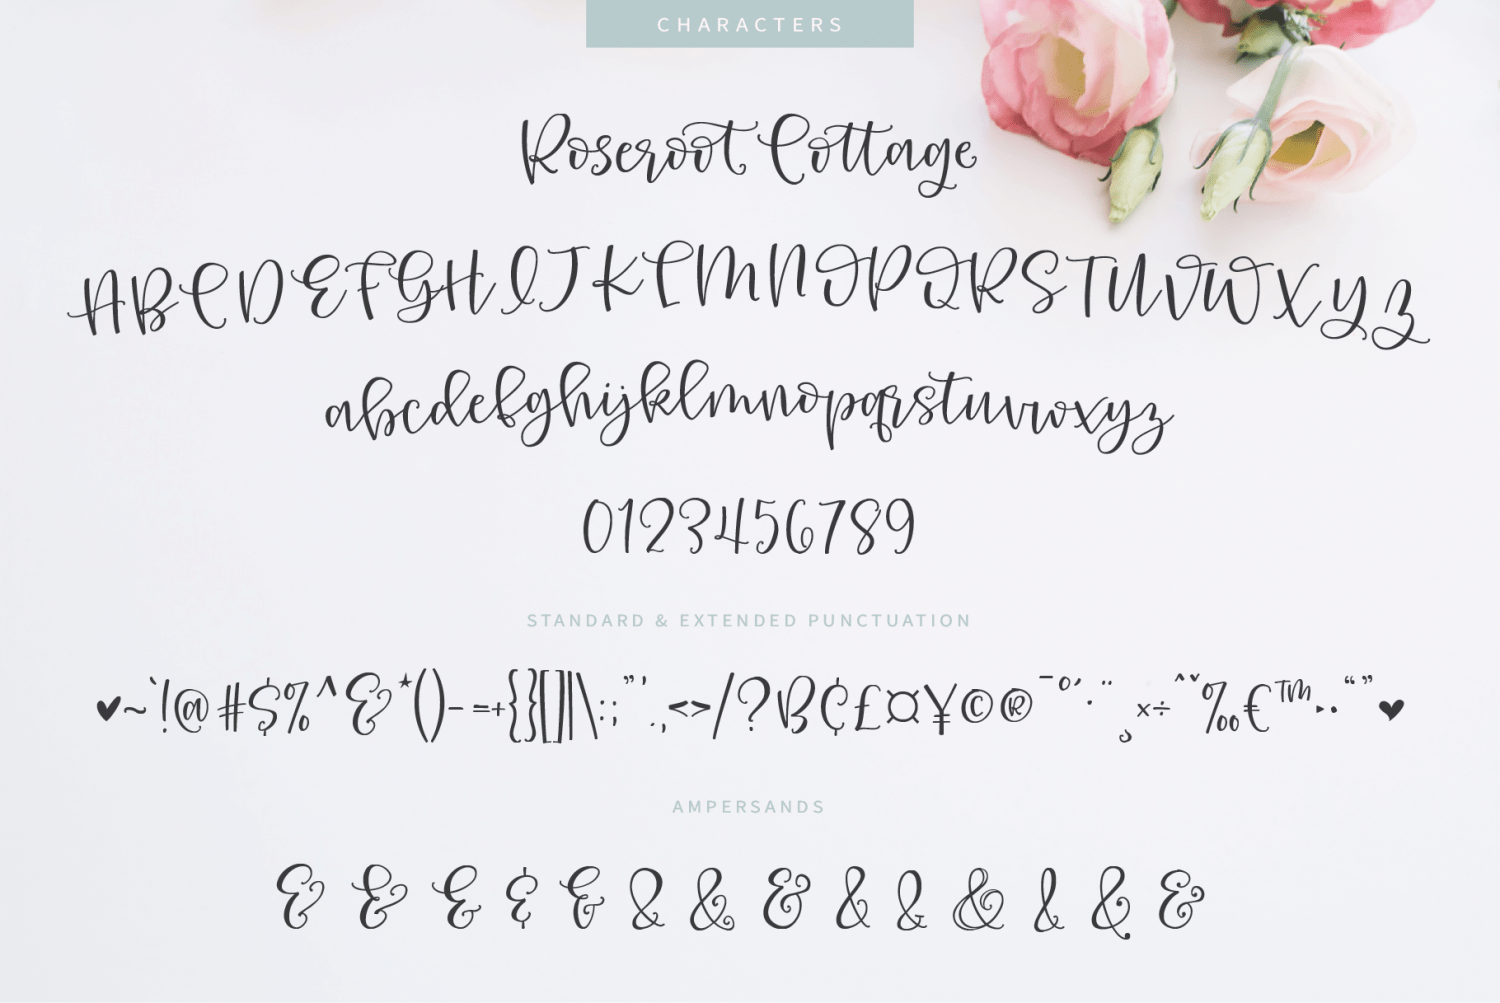 CHARACTERS
Roseroot Cottage
ABCDEFGHIJKLMNOPQRSTUVWXYZ
abcdefghijklmnopqrstuvwxyz
0123456789
STANDARD & EXTENDED PUNCTUATION
♥~`!@#$%^&*()-=+{}[]|\:;"'.,<>/?ß¢£¤¥©®¯°´·¨¸×÷ˆˇ‰€™‣•“”♥
AMPERSANDS
& & & & & & & & & & & & & &